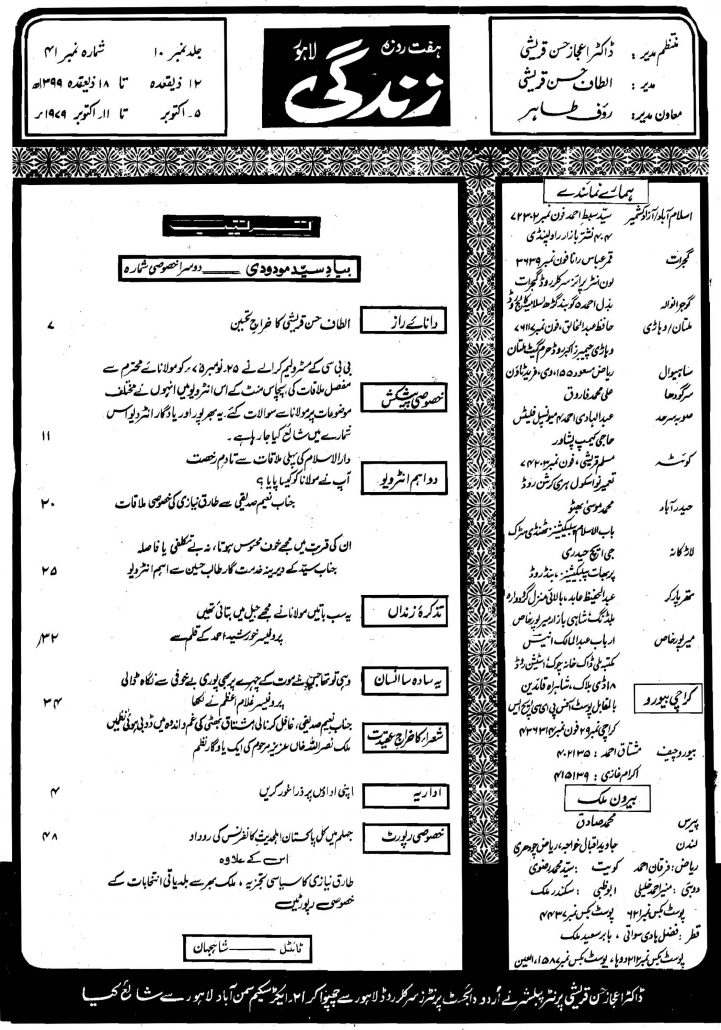 منتظم مدیر : ڈاکٹر اعجاز حسن قریشی
مدیر : الطاف حسن قریشی
معاون مدیر : رؤف طاہر
ہفت روزہ
زندگی
لاہور
جلد نمبر ۱۰ شمارہ نمبر ۴۱
۱۲ ذیقعدہ تا ۱۸ ذیقعدہ ۱۳۹۹ھ
۵۔ اکتوبر تا ۱۱۔ اکتوبر ۱۹۷۹ء
ہمارے نمائندے
اسلام آباد/آزاد کشمیر سید سبط احمد فون نمبر ۷۲۳۰۲
۴۰۴ نشتر بازار راولپنڈی
گجرات قمر عباس رانا فون نمبر ۳۶۳۹
لون انٹرپرائزز سرکلر روڈ گجرات
گوجرانوالہ بذل احمد ۵ گوبند گڑھ اسلامیہ کالج روڈ
ملتان/وہاڑی حافظ عبدالخالق، فون نمبر ۷۶۱۱۷
وہاڑی چیمبرز اکبر روڈ حرم گیٹ ملتان
ساہیوال ریاض مسعود ۱۵۵، دی، فرید ٹاؤن
سرگودھا علی محمد فاروق
صوبہ سرحد عبدالہادی احمد ۴ میونسپل فلیٹس
حاجی کیمپ پشاور
کوئٹہ مسلم قریشی، فون نمبر ۷۴۲۰۳
تعمیر نو اسکول ہری کرشن روڈ
حیدرآباد محمد موسیٰ بھٹو
باب الاسلام پبلیکیشنز ٹھنڈی سڑک
لاڑکانہ جی ایم حیدری
پربھات پبلیکیشنز، بنڈ روڈ
تھرپارکر عبدالحفیظ عابد، بالائی منزل گردوارہ
بلڈنگ شاہی بازار میرپور خاص
میرپور خاص ارباب عبدالمالک انیس
مکتبہ ملی ڈاک خانہ چوک اسٹیشن روڈ
کراچی بیورو
۱۸ ڈی بلاک، شاہراہ قائدین
بالمقابل پوسٹ آفس پی ای سی ایچ ایس
کراچی نمبر ۲۹ فون نمبر ۴۳۶۳۱۴
بیورو چیف مشتاق احمد : ۴۰۲۱۳۵
اکرام غازی : ۴۱۵۱۳۹
بیرون ملک
پیرس محمد صادق
لندن جاوید اقبال خواجہ، ریاض چودھری
ریاض: فرقان احمد کویت: سید محمد رضوی
دوبئی: منیر احمد خلیلی ابوظبی: سکندر ملک
پوسٹ بکس ۶۲۱ پوسٹ بکس نمبر ۴۴۳۷
قطر: فضل ہادی سواتی، بابر سعید ملک
پوسٹ بکس نمبر ۲۱۲ دوہا، پوسٹ بکس نمبر ۱۵۸۷، العین
ترتیب
بیاد سید مودودی ــــ دوسرا خصوصی شمارہ
دانائے راز الطاف حسن قریشی کا خراج تحسین ۷
خصوصی پیشکش بی بی سی کے مسٹر ولیم کرالے نے ۲۵۔ نومبر ۷۵ء کو مولانائے محترم سے
مفصل ملاقات کی، پچاس منٹ کے اس انٹرویو میں انہوں نے مختلف
موضوعات پر مولانا سے سوالات کئے۔ یہ بھرپور اور یادگار انٹرویو اس
شمارے میں شائع کیا جا رہا ہے۔ ۱۱
دو اہم انٹرویو دارالاسلام کی پہلی ملاقات سے تادم رخصت
آپ نے مولانا کو کیسا پایا؟
جناب نعیم صدیقی سے طارق نیازی کی خصوصی ملاقات ۲۰
ان کی قربت میں مجھے خوف محسوس ہوتا، نہ بے تکلفی یا فاصلہ
جناب سید کے دیرینہ خدمت گار طالب حسین سے اہم انٹرویو ۲۵
تذکرۂ زنداں یہ سب باتیں مولانا نے مجھے جیل میں بتائی تھیں
پروفیسر خورشید احمد کے قلم سے ۳۲
یہ سادہ سا انسان وہی تو تھا جس نے موت کے چہرے پر بھی پوری بے خوفی سے نگاہ ڈالی
پروفیسر غلام اعظم نے لکھا ۳۴
شعراء کا خراج عقیدت جناب نعیم صدیقی، عاقل کرنالی، مشتاق بھٹی کی غم و اندوہ میں ڈوبی ہوئی نظمیں
ملک نصراللہ خاں عزیز مرحوم کی ایک یادگار نظم
اداریہ اپنی اداؤں پر ذرا غور کریں ۴
خصوصی رپورٹ جہلم میں کل پاکستان اہلحدیث کانفرنس کی روداد ۴۸
اس کے علاوہ
طارق نیازی کا سیاسی تجزیہ، ملک بھر سے بلدیاتی انتخابات کے
خصوصی رپورٹیں
ٹائٹل ــــ شاہجہان
ڈاکٹر اعجاز حسن قریشی پرنٹر پبلشر نے اُردو ڈائجسٹ پرنٹرز سرکلر روڈ لاہور سے چھپوا کر ۲۱۔ ایکڑ سکیم سمن آباد لاہور سے شائع کیا